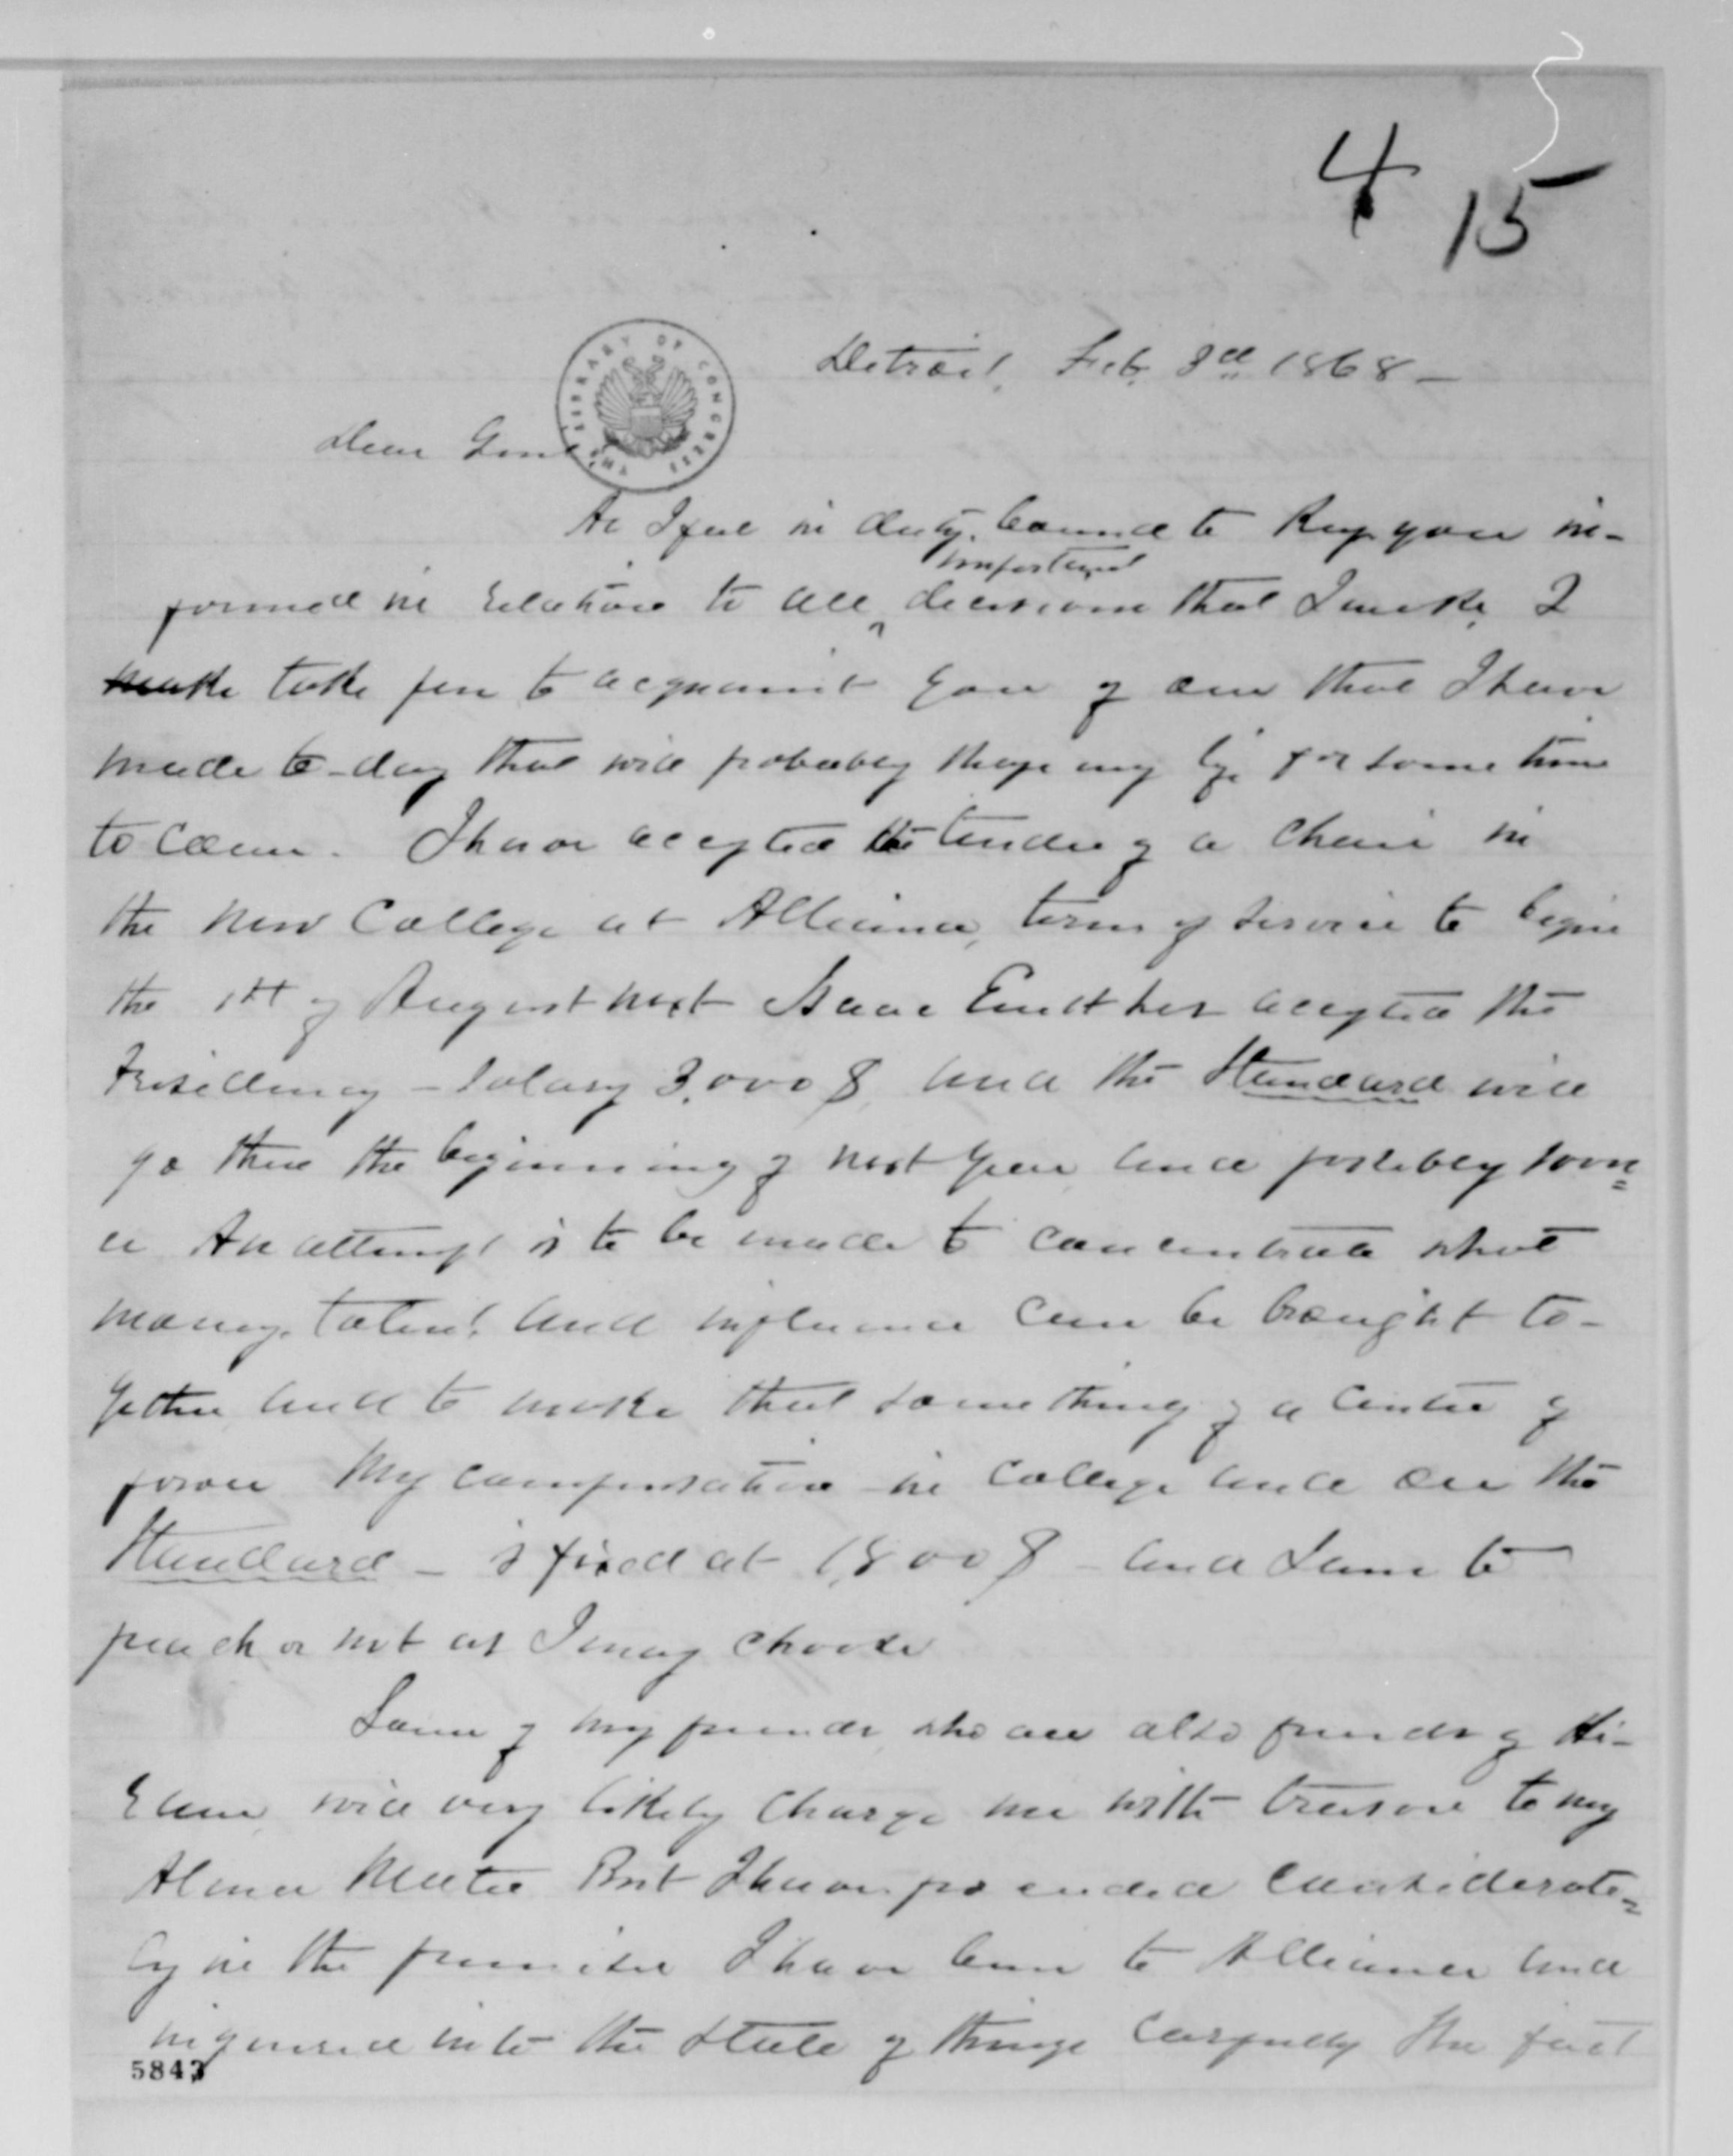 4 15
Detroit, Feb. 3rd 1868 —
THE LIBRARY OF CONGRESS
Dear Genl.
As I feel in duty bound to keep you in-
formed in relation to all important decisions that I make, I
make take pen to acquaint you of one that I have
made to-day that will probably shape my life for some time
to come. I have accepted the tender of a chair in
the new College at Alliance, term of service to begin
the 1st of August next Isaac Errett has accepted the
Presidency – Salary 3,000 $ and the Standard will
go there the beginning of next year and possibly soon=
er An attempt is to be made to concentrate what
money, talent, and influence can be brought to-
gether and to make that something of a centre of
power My compensation in College and on the
Standard – is fixed at 1,800 $ – and I am to
preach or not as I may choose
Some of my friends who are also friends of Hi-
ram will very likely charge me with treason to my
Alma Mater But I have proceeded considerate=
ly in the premises I have been to Alliance and
inquired into the state of things carefully The fact
5843